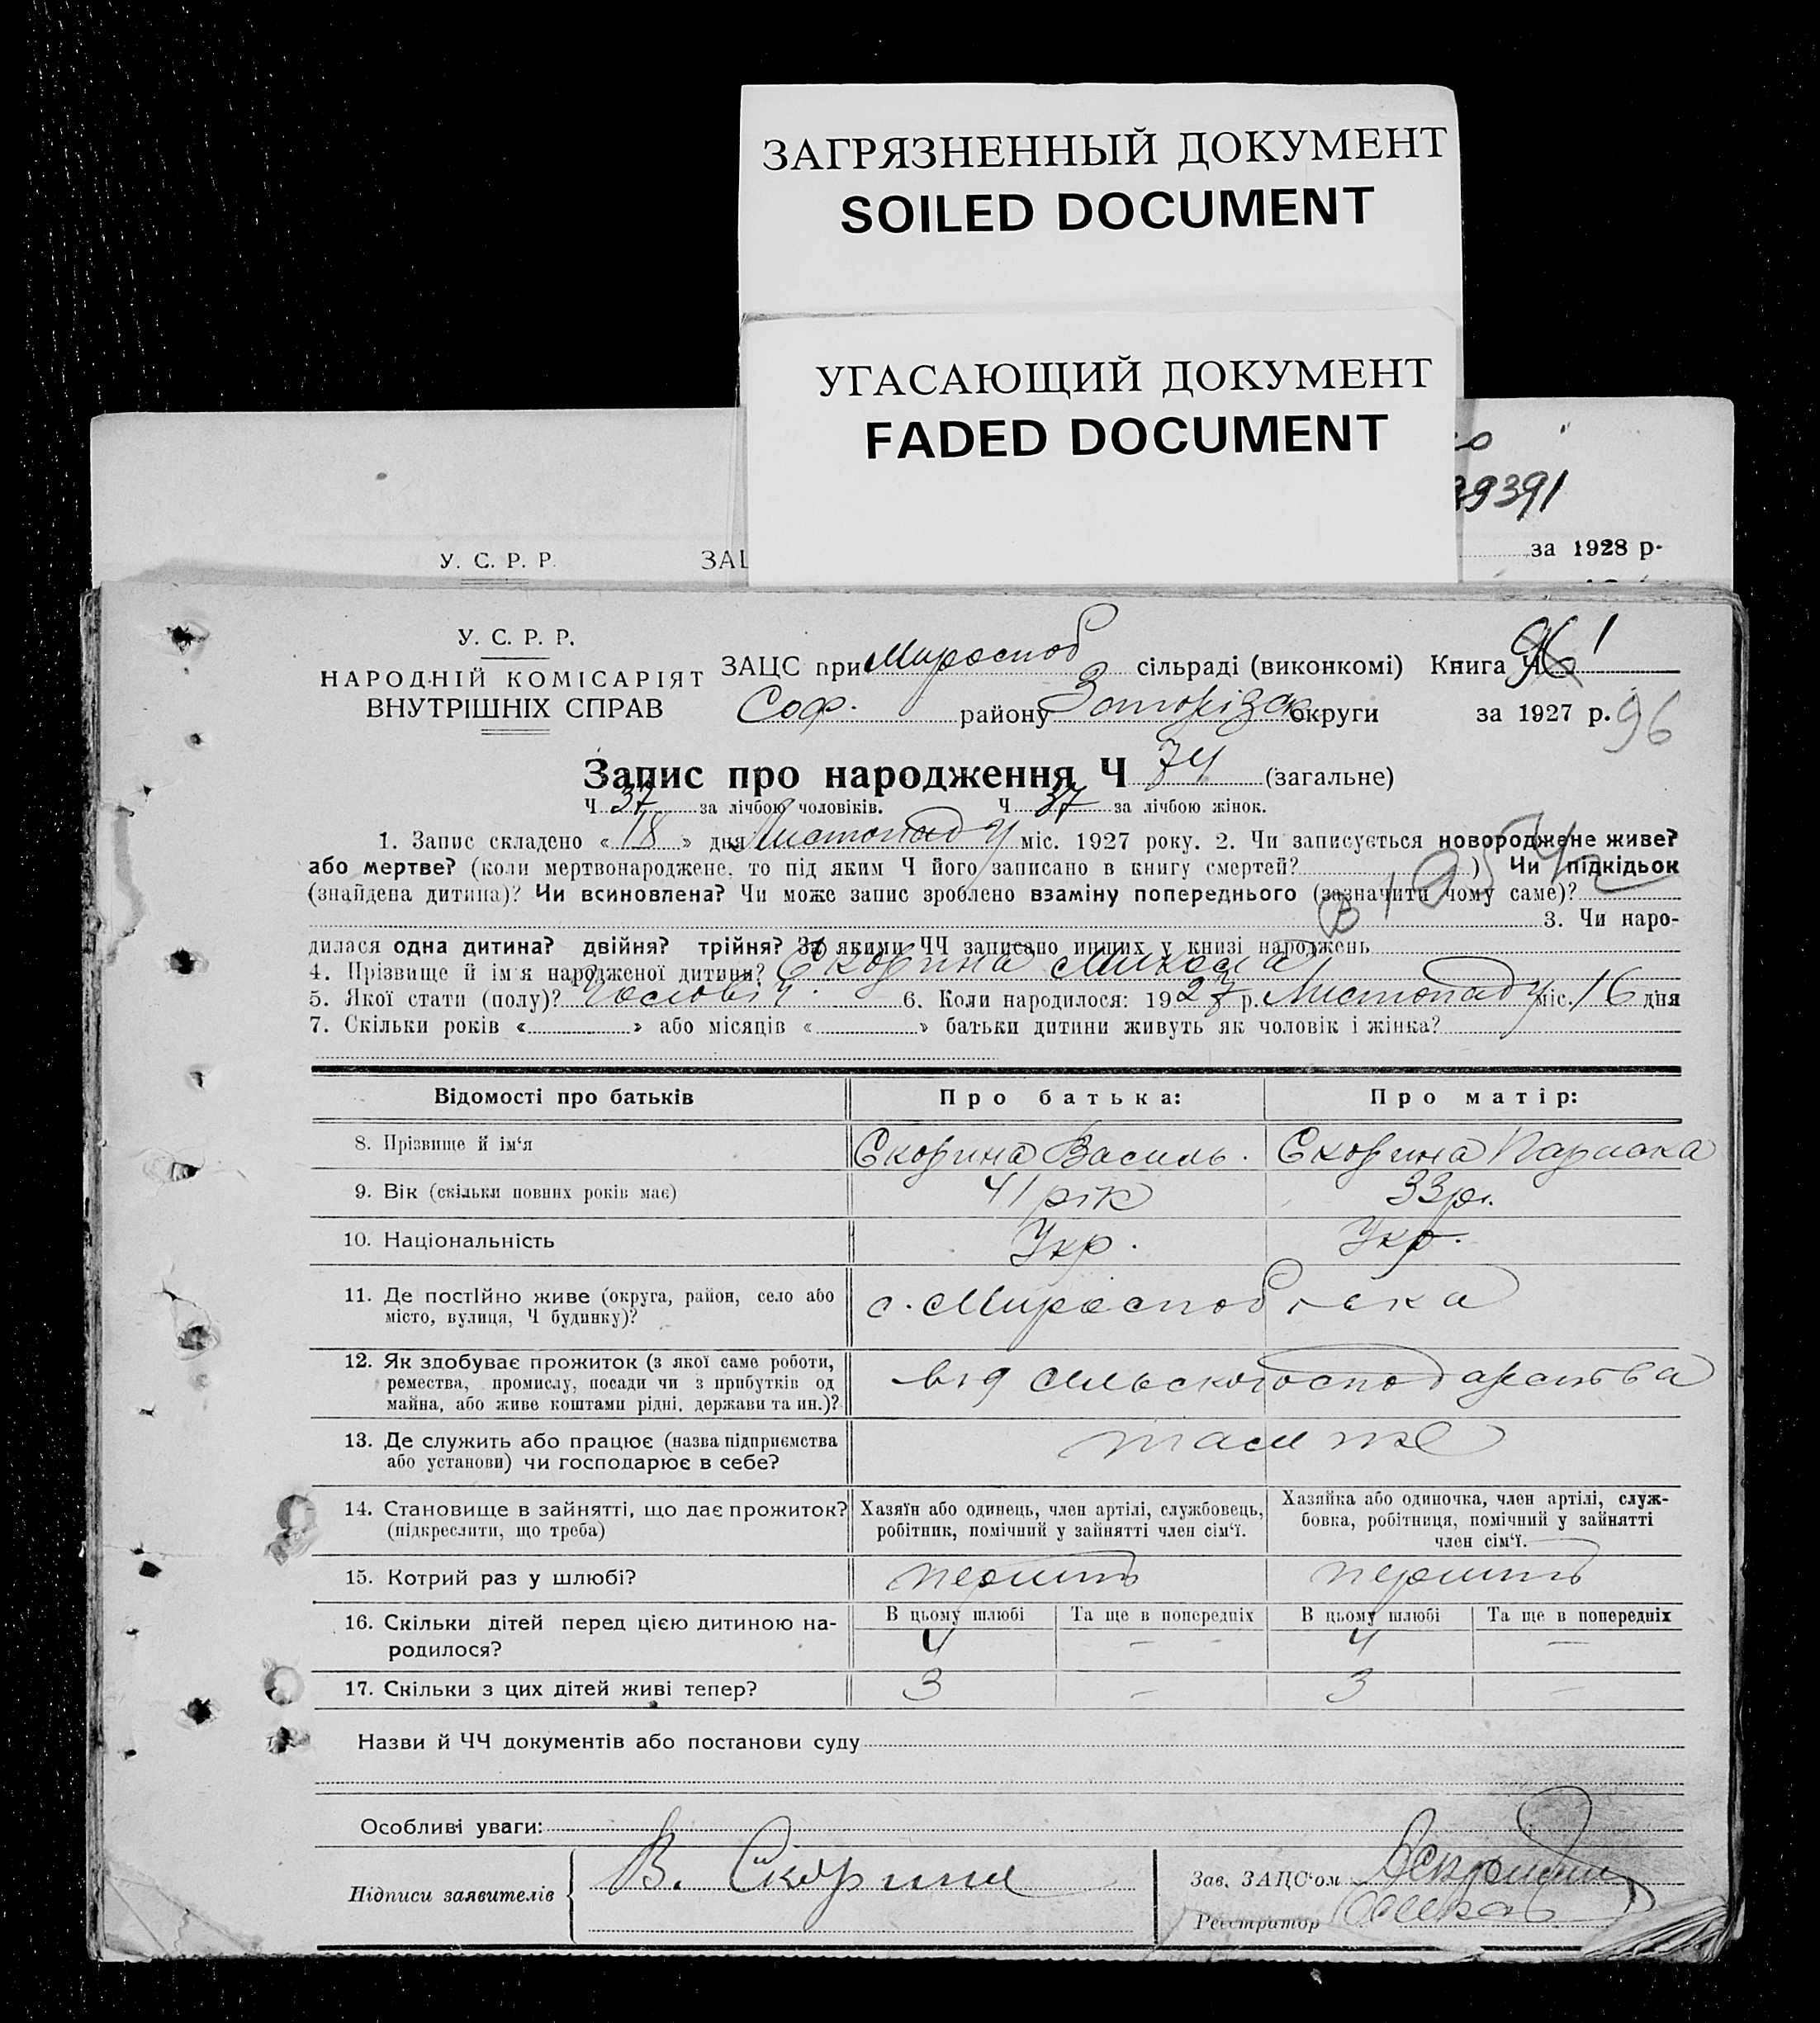 ЗАГРЯЗНЕННЫЙ ДОКУМЕНТ
SOILED DOCUMENT
УГАСАЮЩИЙ ДОКУМЕНТ
FADED DOCUMENT
9391
за 1928 р.
У. С. Р. Р.
У. С. Р. Р.
НАРОДНІЙ КОМІСАРІЯТ
ВНУТРІШНІХ СПРАВ
ЗАЦС при Мироспоб сільраді (виконкомі) Книга Ч 1
Соф. району Запорізьк округи за 1927 р. 96
Запис про народження Ч 74 (загальне)
Ч 37 за лічбою чоловіків. Ч 37 за лічбою жінок.
1. Запис складено « 18 » дня Листопаду міс. 1927 року. 2. Чи записується новороджене живе?
або мертве? (коли мертвонароджене, то під яким Ч його записано в книгу смертей? ) Чи підкідьок
(знайдена дитина)? Чи всиновлена? Чи може запис зроблено взаміну попереднього (зазначити чому саме)?
3. Чи наро-
дилася одна дитина? двійня? трійня? За якими ЧЧ записано инших у книзі народжень
4. Прізвище й ім'я народженої дитини? Скорина Микола
5. Якої стати (полу)? Чоловіч. 6. Коли народилося: 1927 р. Листопаду міс. 16 дня
7. Скільки років « » або місяців « » батьки дитини живуть як чоловік і жінка?
Відомості про батьків
Про батька:
Про матір:
8. Прізвище й ім'я
Скорина Василь.
Скорина Параска
9. Вік (скільки повних років має)
41 рік
33 р.
10. Національність
Укр.
Укр.
11. Де постійно живе (округа, район, село або
місто, вулиця, Ч будинку)?
12. Як здобуває прожиток (з якої саме роботи,
ремества, промислу, посади чи з прибутків од
майна, або живе коштами рідні, держави та ин.)?
від сільського господарства
13. Де служить або працює (назва підприємства
або установи) чи господарює в себе?
там же
14. Становище в зайнятті, що дає прожиток?
(підкреслити, що треба)
Хазяїн або одинець, член артілі, службовець,
робітник, помічний у зайнятті член сім'ї.
Хазяйка або одиночка, член артілі, служ-
бовка, робітниця, помічний у зайнятті
член сім'ї.
15. Котрий раз у шлюбі?
першит
першит
16. Скільки дітей перед цією дитиною на-
родилося?
В цьому шлюбі
Та ще в попередніх
В цьому шлюбі
Та ще в попередніх
4 – 4 –
17. Скільки з цих дітей живі тепер?
3 – 3 –
Назви й ЧЧ документів або постанови суду
Особливі уваги:
Підписи заявителів
В. Скорина
Зав. ЗАЦС'ом
Реєстратор